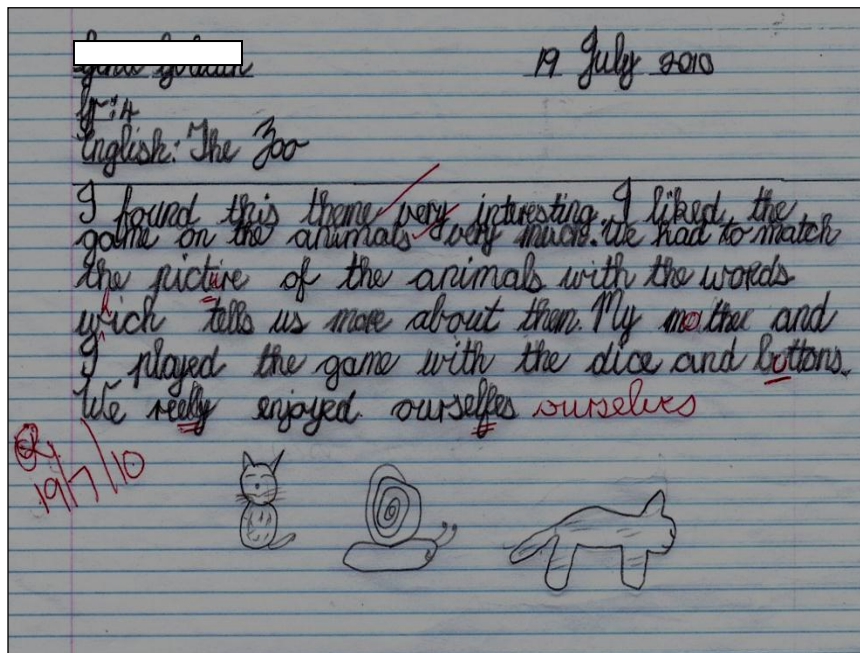 19 July 2010
Gr:4
English: The Zoo
I found this theme very interesting. I liked the
game on the animals very much. We had to match
the picture of the animals with the words
which tells us more about them. My mother and
I played the game with the dice and buttons.
We reelly enjoyed ourselfes ourselves
19/7/10